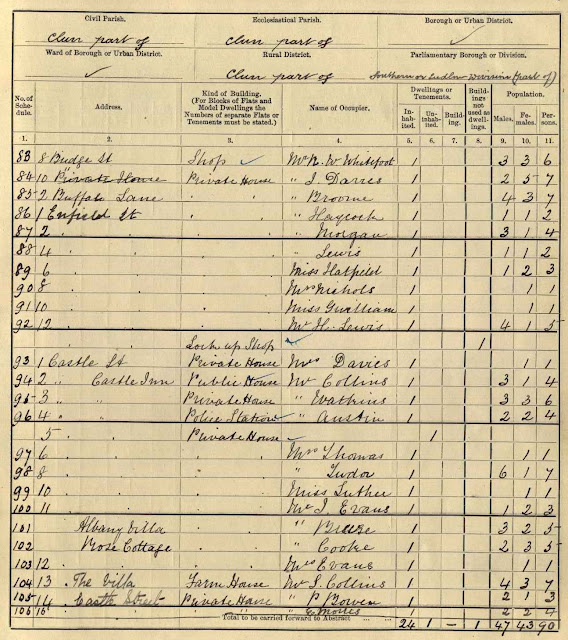 Civil Parish. Ecclesiastical Parish. Borough or Urban District.
Clun part of Clun part of ✓
Ward of Borough or Urban District. Rural District. Parliamentary Borough or Division.
✓ Clun part of Southern or Ludlow Division (part of)
No. of Schedule. Address. Kind of Building. (For Blocks of Flats and Model Dwellings the Numbers of separate Flats or Tenements must be stated.) Name of Occupier. Dwellings or Tenements. Inhabited. Uninhabited. Building. Buildings not used as dwellings. Population. Males. Females. Persons.
1. 2. 3. 4. 5. 6. 7. 8. 9. 10. 11.
83 8 Bridge St Shop ✓ Mr N. W. Whitefoot 1 3 3 6
84 10 Private House Private House " J. Davies 1 2 5 7
85 2 Buffalo Lane " " Broome 1 4 3 7
86 1 Enfield St " " Haycock 1 1 1 2
87 2 " " Morgan 1 3 1 4
88 4 " Lewis 1 1 1 2
89 6 Miss Hatfield 1 1 2 3
90 8 Mrs Nichols 1 1 1
91 10 Miss Gwilliam 1 1 1
92 12 Mr H. Lewis 1 4 1 5
Lock up Shop ✓ 1
93 1 Castle St Private House Mrs Davies 1 1 1
94 2 " Castle Inn Public House Mr Collins 1 3 1 4
95 3 " " Private House " Watkins 1 3 3 6
96 4 " " Police Station " Austin 1 2 2 4
5 Private House ✓ 1
97 6 Mrs Thomas 1 1 1
98 8 " Tudor 1 6 1 7
99 10 Miss Luther 1 1 1
100 11 Mr J. Evans 1 1 2 3
101 Albany Villa " 1 3 2 5
102 Rose Cottage " Cooke 1 2 3 5
103 12 Mrs Evans 1 1 1
104 13 The Villa Farm House Mr J. Collins 1 4 3 7
105 14 Castle Street Private House " P Bowen 1 2 1 3
106 15 " " 1 2 2 4
Total to be carried forward to Abstract 24 1 – 1 47 43 90